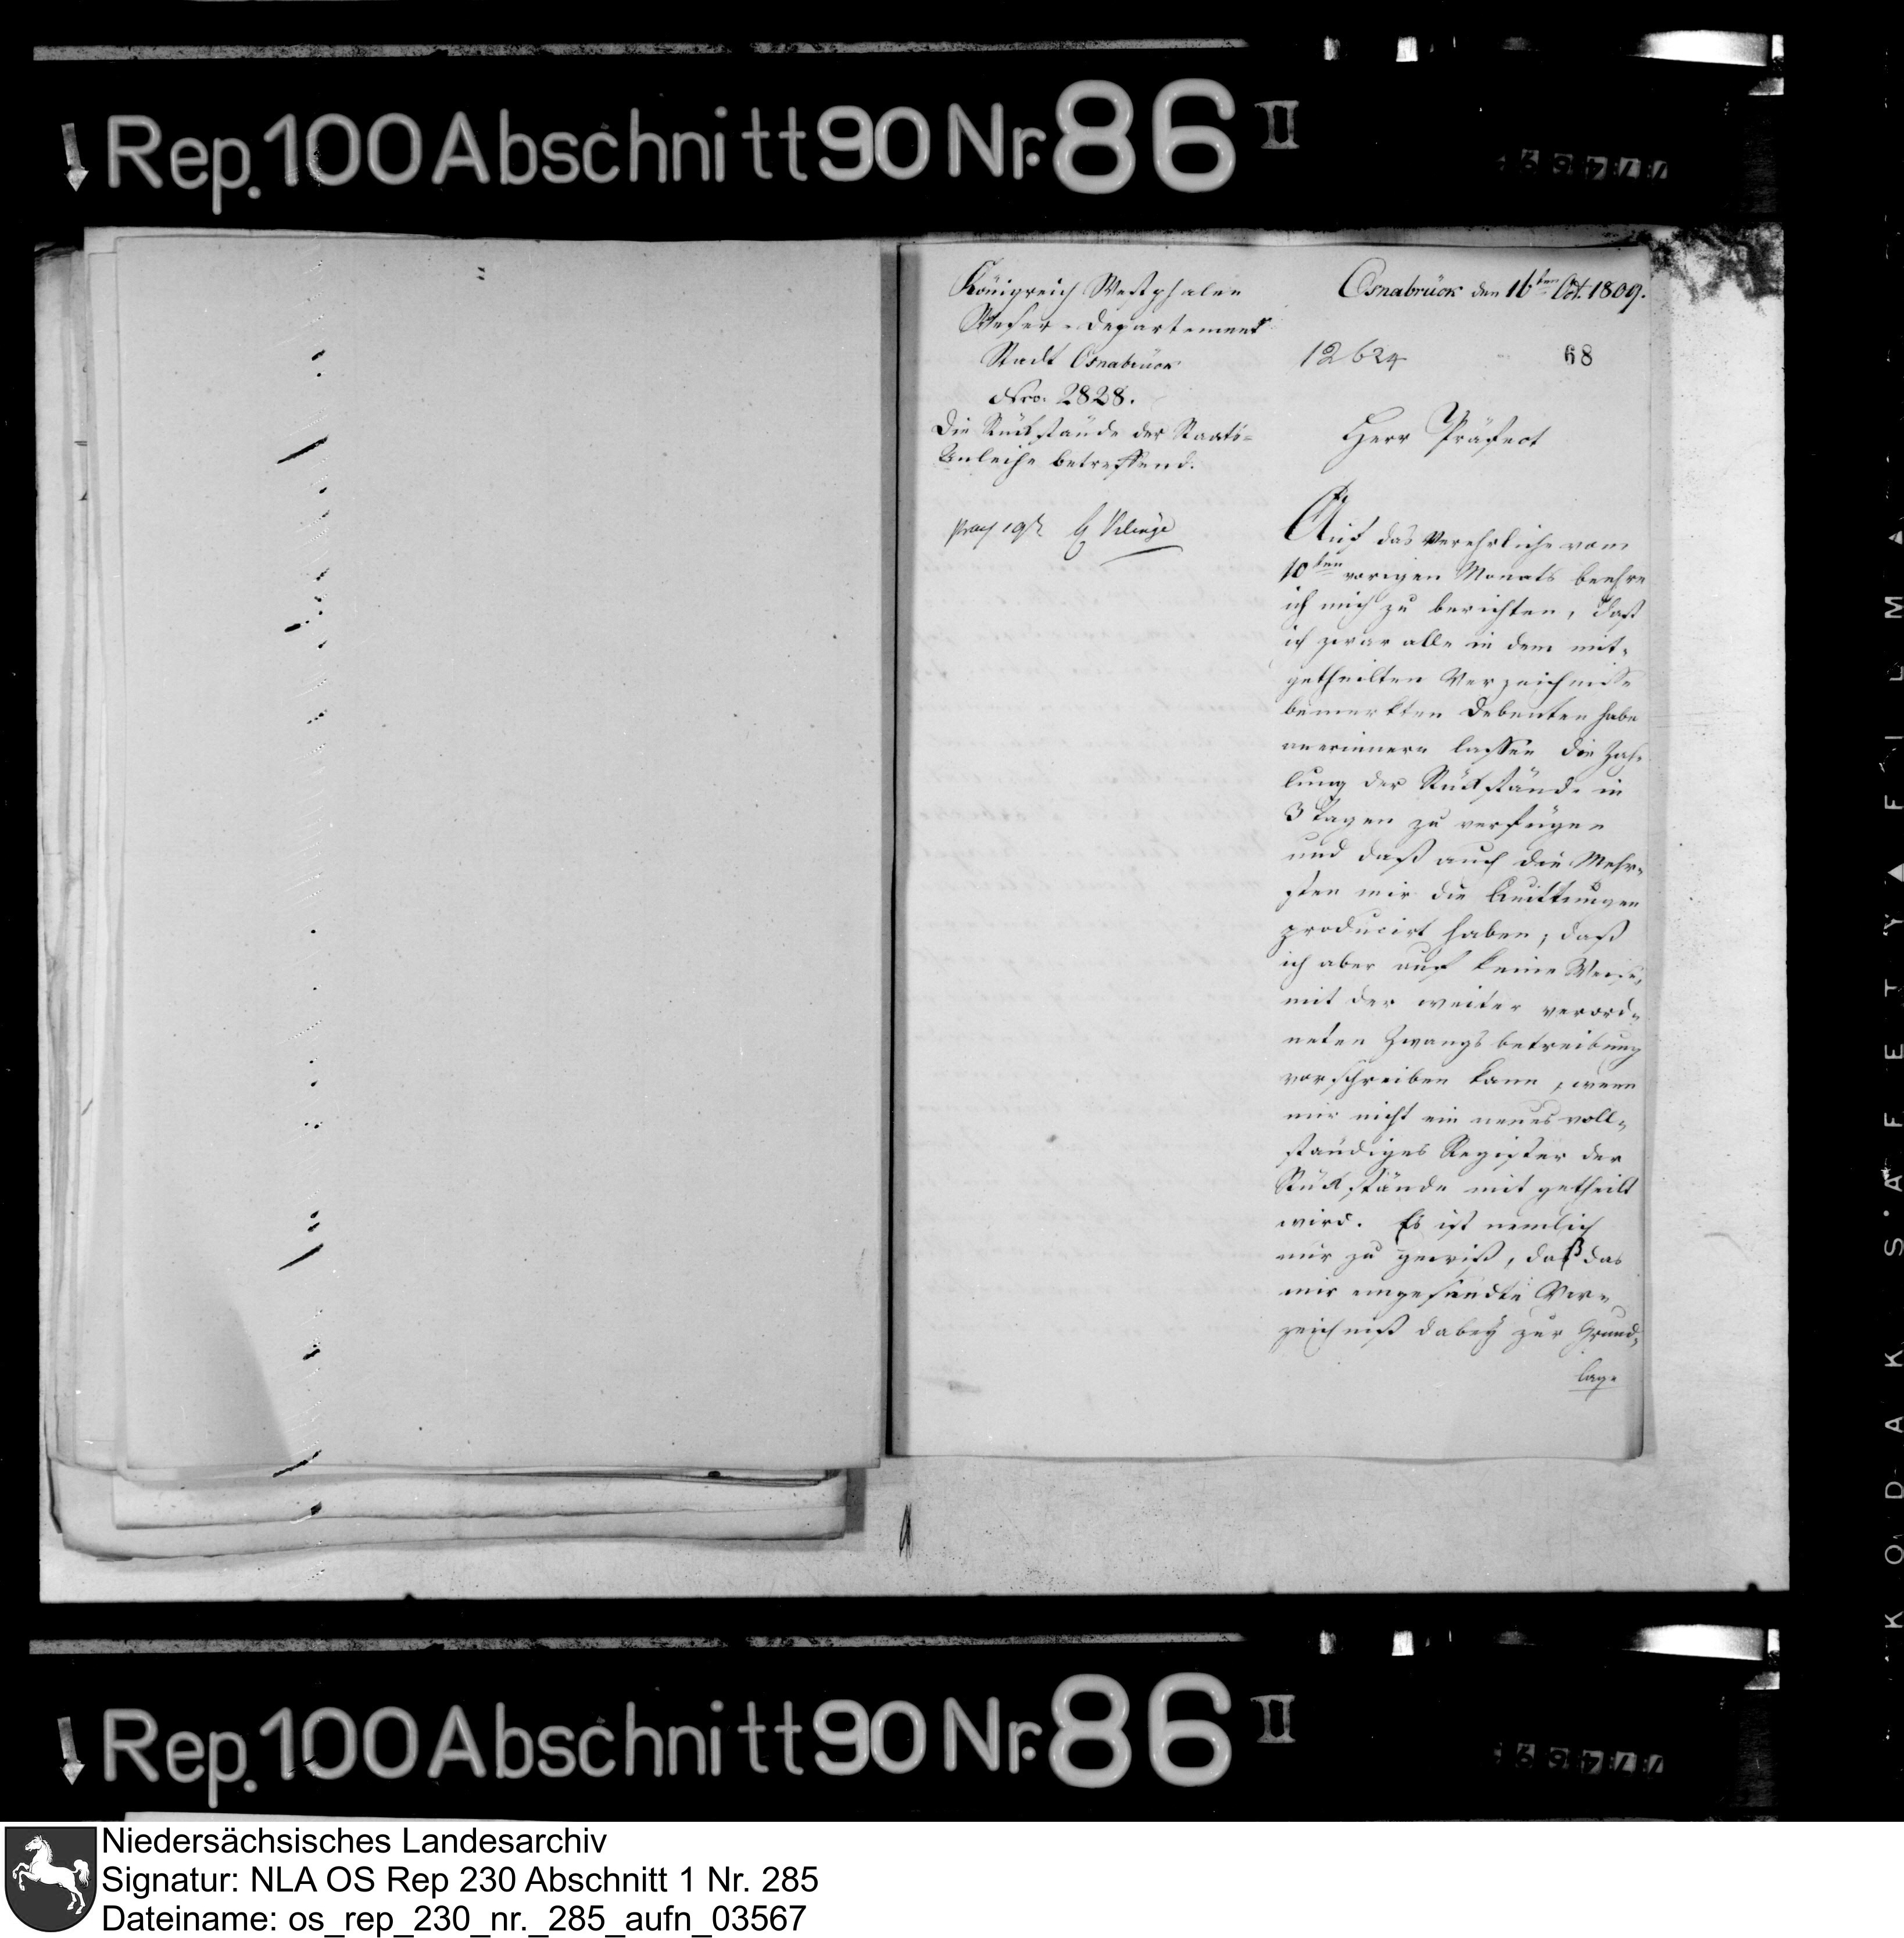 Rep. 100 Abschnitt 90 Nr. 86 II
Königreich Westphalen
Weser-Departement
Stadt Osnabrück
Nro. 2828.
Die Rückstände der Staats-
Anleihe betreffend.
Osnabrück den 16ten Oct. 1809.
12624
68
Herr Präfect
Auf das Verehrliche vom
10ten vorigen Monats beehre
ich mich zu berichten, daß
ich zwar alle in dem mit-
getheilten Verzeichnisse
bemerkten Debenten habe
anerinnern lassen die Zah-
lung der Rückstände in
3 Tagen zu verfügen
und daß auch die Mehr-
sten mir die Quittungen
producirt haben; daß
ich aber auf keine Weise,
mit der weiter verord-
neten Zwangsbetreibung
vorschreiben kann, wenn
mir nicht ein neues voll-
ständiges Register der
Rückstände mit getheilt
wird. Es ist nemlich
nur zu gewiß, daß das
mir eingesandte Ver-
zeichniß dabey zur Grund-
lage
KODAK SAFETY FILM
Rep. 100 Abschnitt 90 Nr. 86 II
Niedersächsisches Landesarchiv
Signatur: NLA OS Rep 230 Abschnitt 1 Nr. 285
Dateiname: os_rep_230_nr._285_aufn_03567